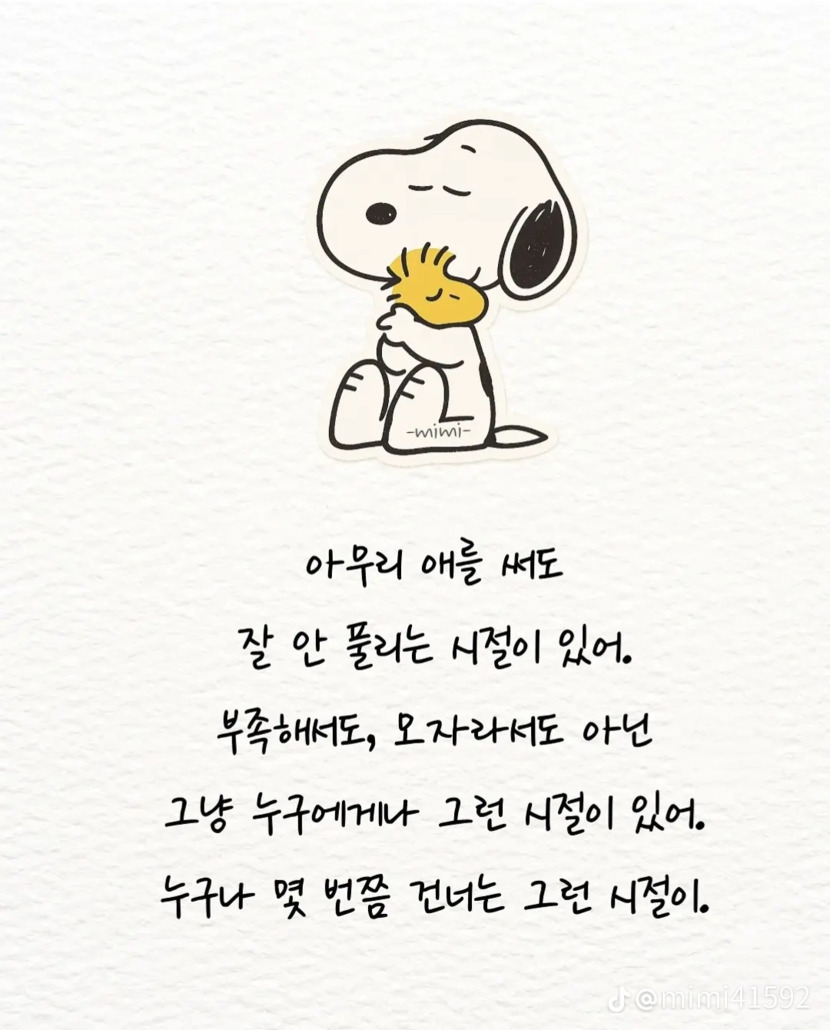 -mimi-
아무리 애를 써도
잘 안 풀리는 시절이 있어.
부족해서도, 모자라서도 아닌
그냥 누구에게나 그런 시절이 있어.
누구나 몇 번쯤 건너는 그런 시절이.
@mimi41592